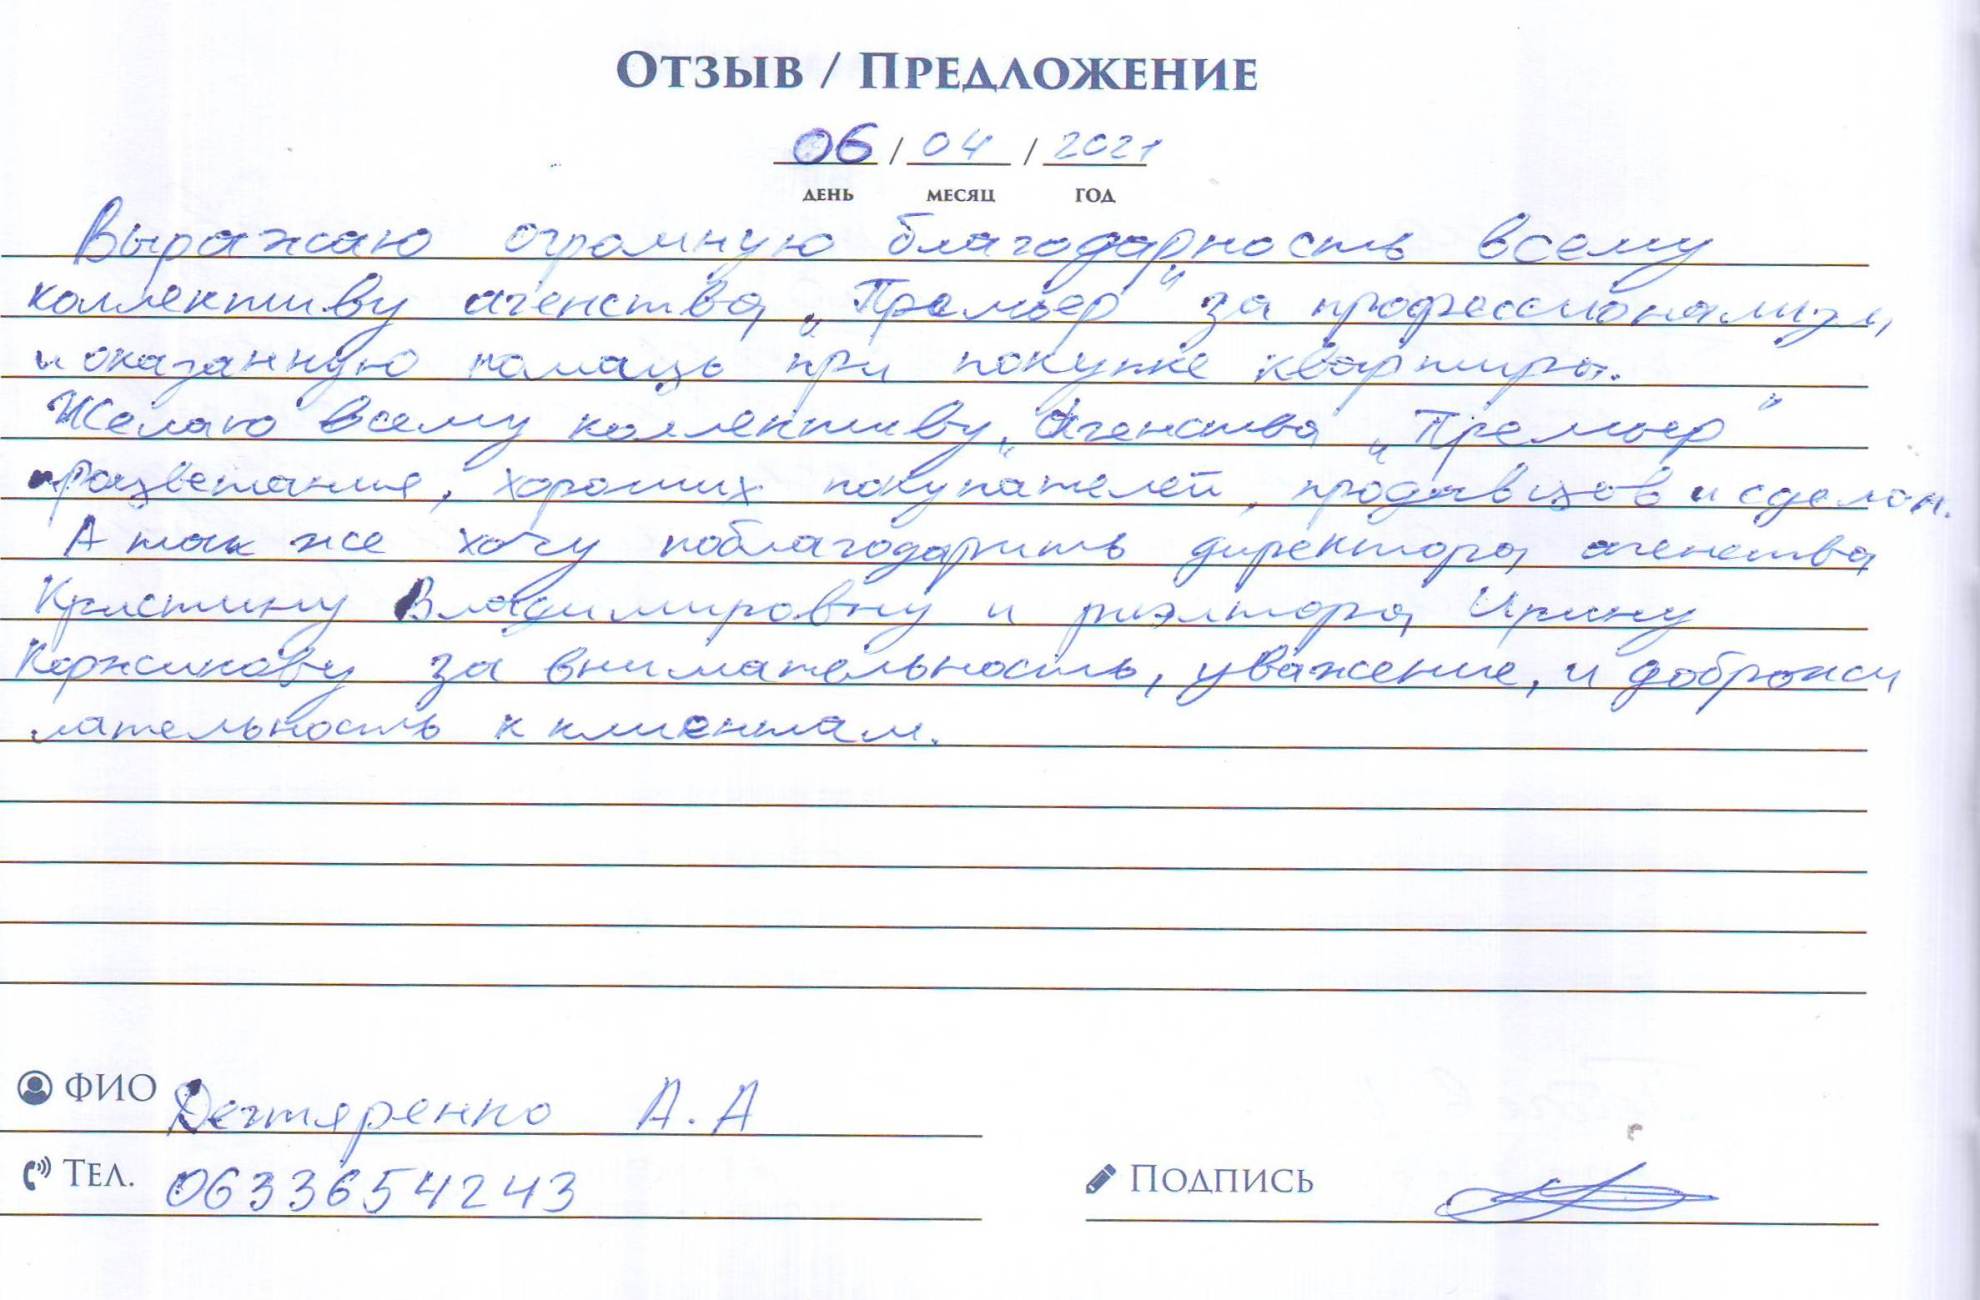 Отзыв / Предложение
06 / 04 / 2021
день месяц год
Выражаю огромную благодарность всему
коллективу агенства „Премьер" за профессионализм,
и оказанную помощь при покупке квартиры.
Желаю всему коллективу „Агенства „Премьер"
процветания, хороших покупателей, продавцов и сделок.
А так же хочу поблагодарить директора агенства
Кристину Владимировну и риэлтора Ирину
Коржикову за внимательность, уважение, и доброжи
лательность к клиентам.
ФИО Дегтяренко А.А
Тел. 0633654243
Подпись